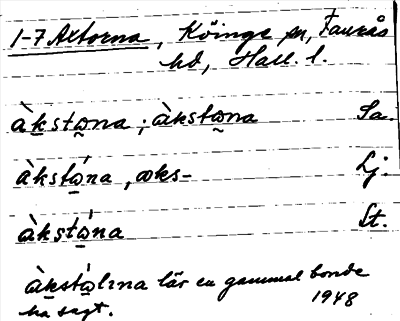 1-7 Axtorna, Köinge sn, Faurås
hd, Hall. l.
àkstω̰na; àkstω̰na Sa.
àkstώ̲na, ωks- Lj.
àkstώ̲na St.
àkstώ̲lına lär en gammal bonde
ha sagt. 1948